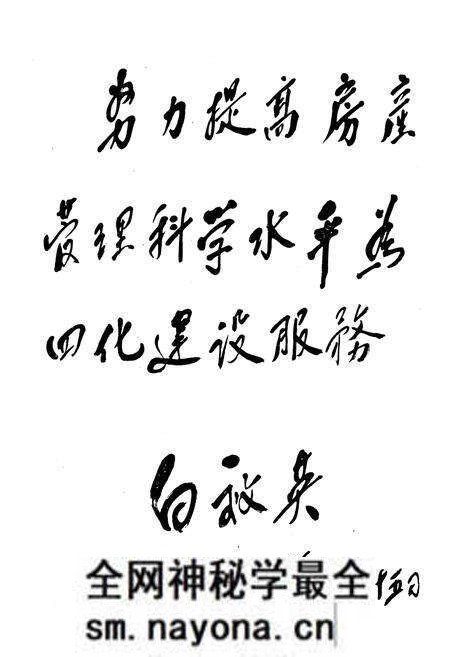 努力提高房産
管理科学水平為
四化建设服務
白
全网神秘学最全
sm.nayona.cn